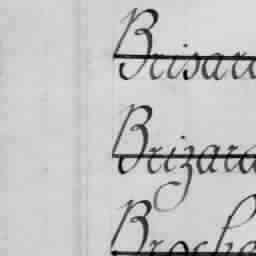 Brisard
Brizard
Brocha